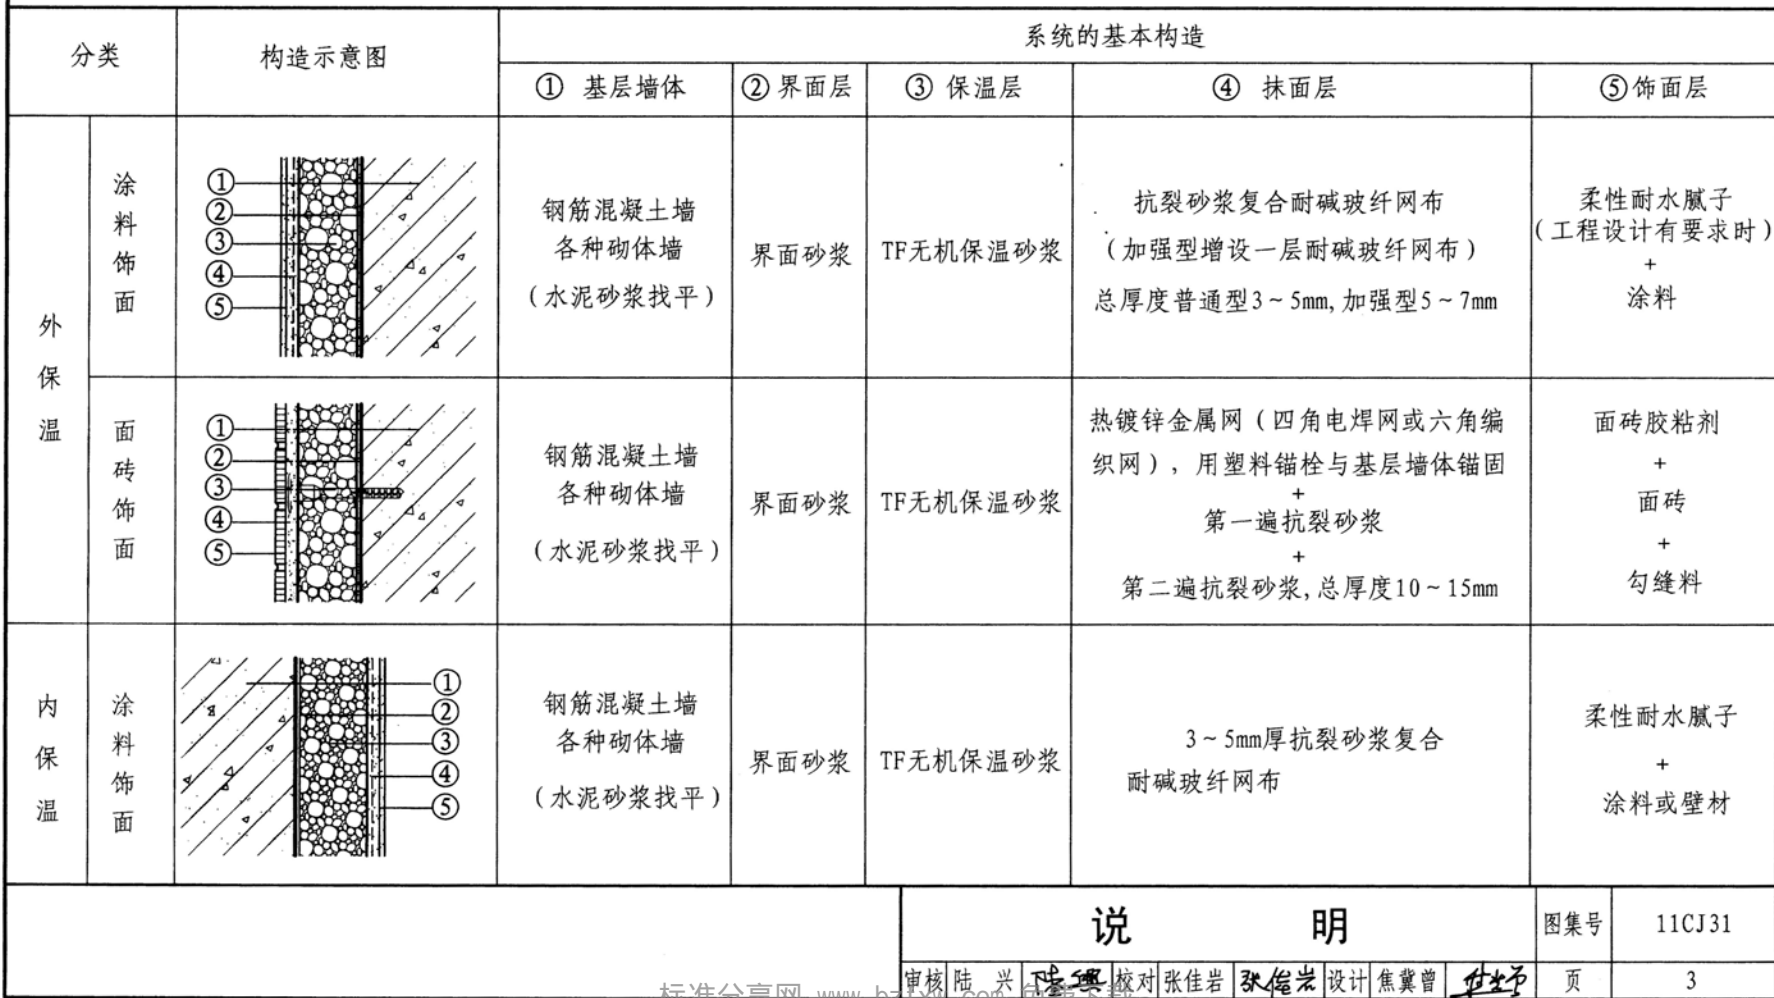 分类
构造示意图
系统的基本构造
① 基层墙体
② 界面层
③ 保温层
④ 抹面层
⑤ 饰面层
外保温
涂料饰面
①
②
③
④
⑤
钢筋混凝土墙
各种砌体墙
（水泥砂浆找平）
界面砂浆
TF无机保温砂浆
抗裂砂浆复合耐碱玻纤网布
（加强型增设一层耐碱玻纤网布）
总厚度普通型3～5mm,加强型5～7mm
柔性耐水腻子
（工程设计有要求时）
+
涂料
面砖饰面
①
②
③
④
⑤
钢筋混凝土墙
各种砌体墙
（水泥砂浆找平）
界面砂浆
TF无机保温砂浆
热镀锌金属网（四角电焊网或六角编
织网），用塑料锚栓与基层墙体锚固
+
第一遍抗裂砂浆
+
第二遍抗裂砂浆,总厚度10～15mm
面砖胶粘剂
+
面砖
+
勾缝料
内保温
涂料饰面
①
②
③
④
⑤
钢筋混凝土墙
各种砌体墙
（水泥砂浆找平）
界面砂浆
TF无机保温砂浆
3～5mm厚抗裂砂浆复合
耐碱玻纤网布
柔性耐水腻子
+
涂料或壁材
说 明
图集号
11CJ31
审核 陆 兴 陆兴 校对 张佳岩 张佳岩 设计 焦冀曾
页
3